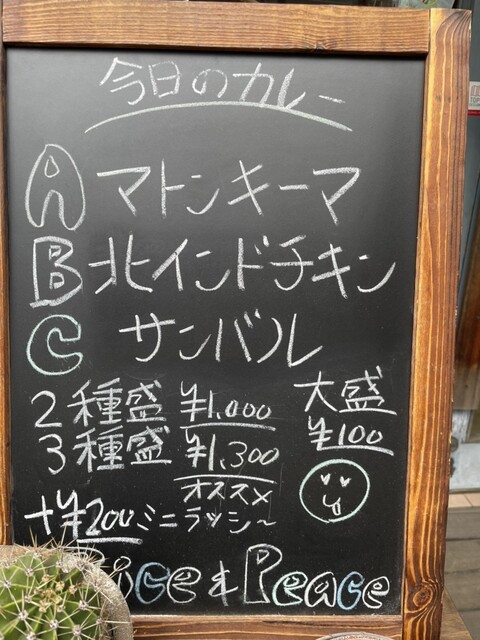 今日のカレー
A マトンキーマ
B 北インドチキン
C サンバル
2種盛 ¥1,000
3種盛 ¥1,300
オススメ
大盛
¥100
+¥200ミニラッシ〜
Rice & Peace